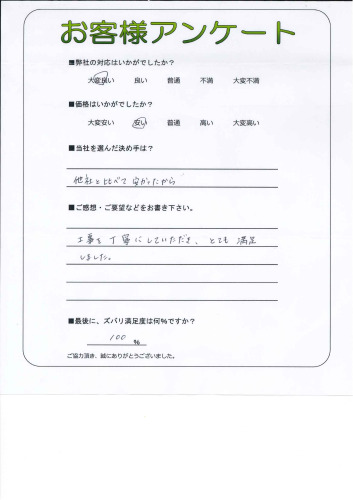 お客様アンケート
■弊社の対応はいかがでしたか?
大変良い 良い 普通 不満 大変不満
■価格はいかがでしたか?
大変安い 安い 普通 高い 大変高い
■当社を選んだ決め手は?
他社と比べて安かったから
■ご感想・ご要望などをお書き下さい。
工事も丁寧にしていただき、とても満足
しました。
■最後に、ズバリ満足度は何%ですか?
100 %
ご協力頂き、誠にありがとうございました。